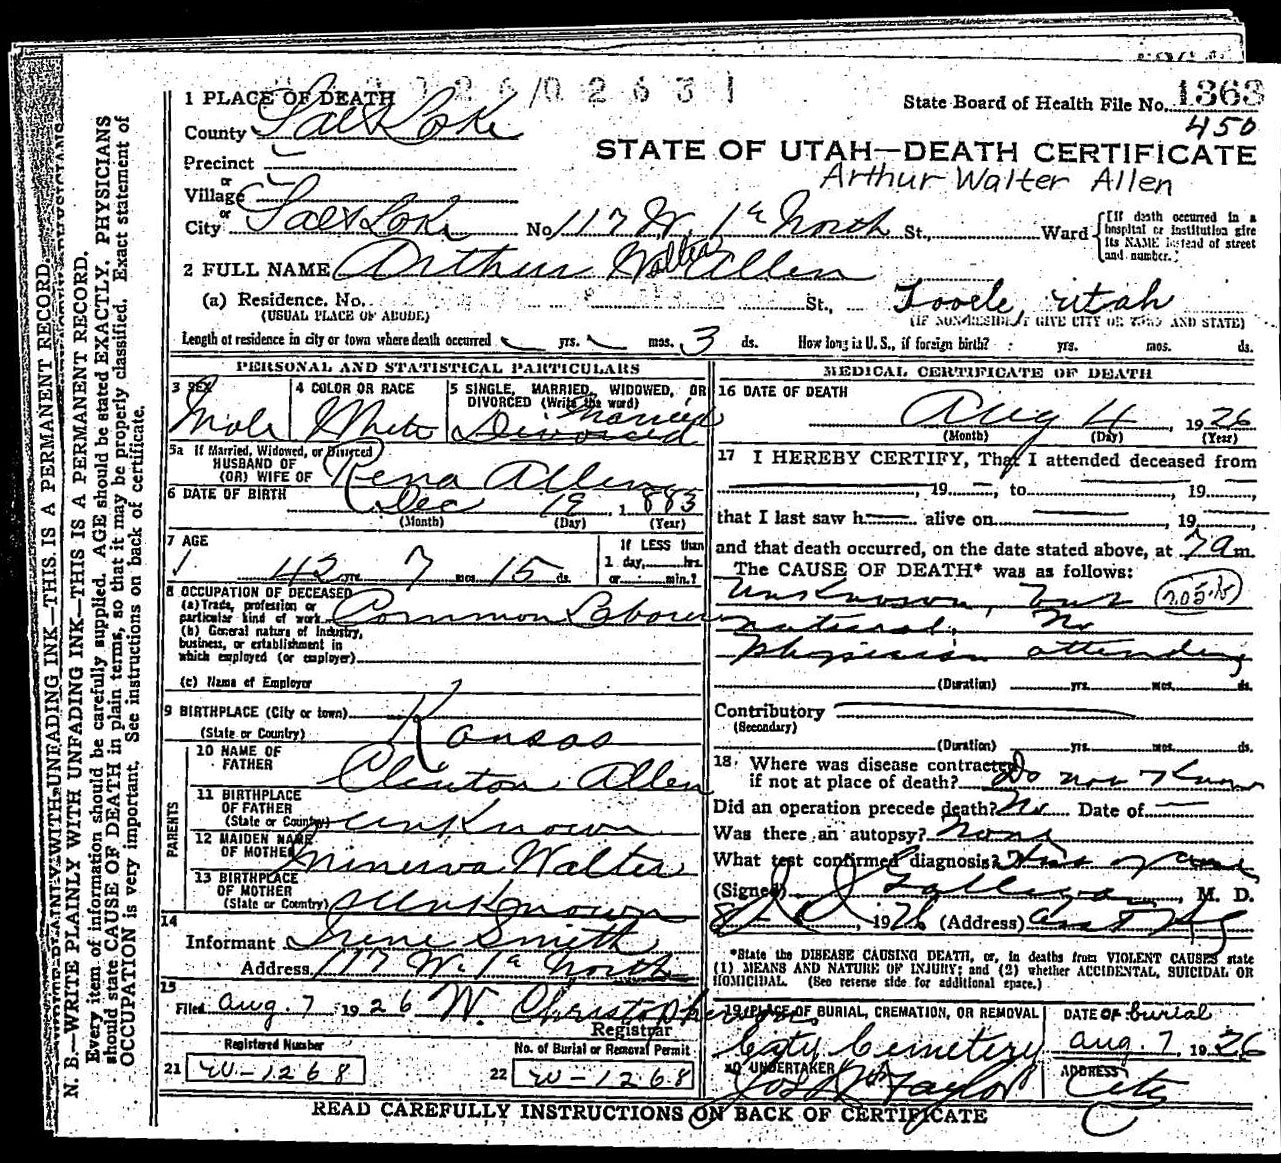 1363
1 PLACE OF DEATH
State Board of Health File No. 1363
450
County Salt Lake
STATE OF UTAH—DEATH CERTIFICATE
Precinct
Arthur Walter Allen
or
Village
or
City Salt Lake No. 117 W. 1st North St., Ward
[If death occurred in a hospital or institution give its NAME instead of street and number.]
2 FULL NAME Arthur Walter Allen
(a) Residence. No. St., Tooele, Utah
(USUAL PLACE OF ABODE) (IF NON-RESIDENT GIVE CITY OR TOWN AND STATE)
Length of residence in city or town where death occurred yrs. mos. 3 ds. How long in U.S., if foreign birth? yrs. mos. ds.
PERSONAL AND STATISTICAL PARTICULARS
3 SEX
Male
4 COLOR OR RACE
White
5 SINGLE, MARRIED, WIDOWED, OR DIVORCED (Write the word)
Married
Divorced
5a If Married, Widowed, or Divorced
HUSBAND OF
(OR) WIFE OF Rena Allen
6 DATE OF BIRTH Dec 19, 1883
(Month) (Day) (Year)
7 AGE
42 yrs. 7 mos. 15 ds.
If LESS than
1 day, hrs.
or min.?
8 OCCUPATION OF DECEASED
(a) Trade, profession or
particular kind of work Common Laborer
(b) General nature of Industry,
business, or establishment in
which employed (or employer)
(c) Name of Employer
9 BIRTHPLACE (City or town)
(State or Country) Kansas
PARENTS
10 NAME OF
FATHER Clinton Allen
11 BIRTHPLACE
OF FATHER
(State or Country) Unknown
12 MAIDEN NAME
OF MOTHER Minerva Walter
13 BIRTHPLACE
OF MOTHER
(State or Country) Unknown
14
Informant Irene Smith
Address 117 W. 1st North
15
Filed Aug. 7 1926 W. Christopherson
Registrar
Registered Number
21 W-1268
No. of Burial or Removal Permit
22 W-1268
MEDICAL CERTIFICATE OF DEATH
16 DATE OF DEATH
Aug 4, 1926
(Month) (Day) (Year)
17 I HEREBY CERTIFY, That I attended deceased from
, 19 , to , 19 ,
that I last saw h alive on , 19 ,
and that death occurred, on the date stated above, at 7 am.
The CAUSE OF DEATH* was as follows:
Unknown, but
natural. No
Physician attending
(Duration) yrs. mos. ds.
Contributory
(Secondary)
(Duration) yrs. mos. ds.
18. Where was disease contracted
if not at place of death? Do not know
Did an operation precede death? No Date of
Was there an autopsy? none
What test confirmed diagnosis?
(Signed) , M. D.
, 1926 (Address)
*State the DISEASE CAUSING DEATH, or, in deaths from VIOLENT CAUSES state
(1) MEANS AND NATURE OF INJURY; and (2) whether ACCIDENTAL, SUICIDAL OR
HOMICIDAL. (See reverse side for additional space.)
19 PLACE OF BURIAL, CREMATION, OR REMOVAL
City Cemetery
DATE OF burial
Aug. 7, 1926
20 UNDERTAKER
Taylor
ADDRESS
City
READ CAREFULLY INSTRUCTIONS ON BACK OF CERTIFICATE
N. B.—WRITE PLAINLY WITH UNFADING INK—THIS IS A PERMANENT RECORD.
Every item of information should be carefully supplied. AGE should be stated EXACTLY. PHYSICIANS
should state CAUSE OF DEATH in plain terms, so that it may be properly classified. Exact statement of
OCCUPATION is very important. See instructions on back of certificate.